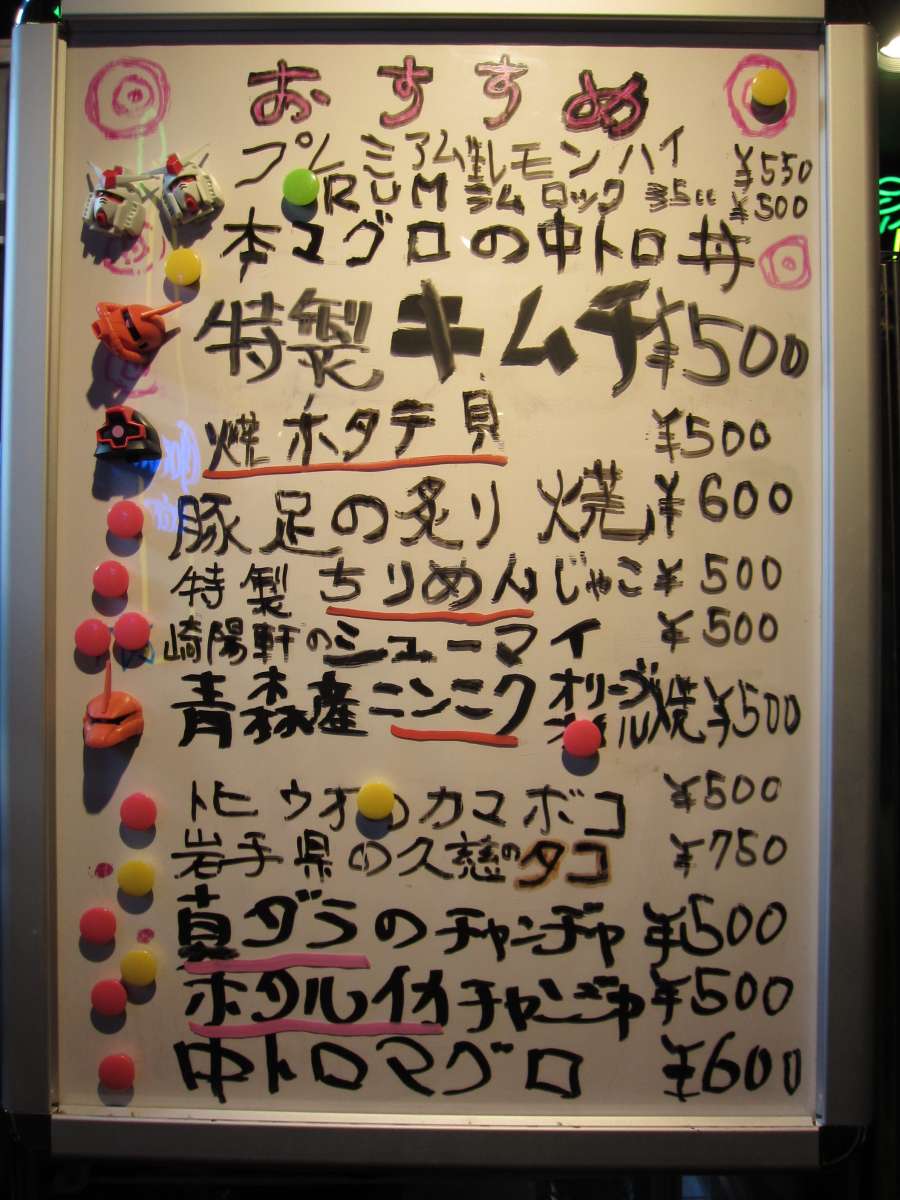 おすすめ
プレミアム生レモンハイ ¥550
RUM ラム ロック 35cc ¥500
本マグロの中トロ丼
特製キムチ¥500
焼ホタテ貝 ¥500
豚足の炙り焼¥600
特製ちりめんじゃこ¥500
崎陽軒のシューマイ ¥500
青森産ニンニクオリーブオイル焼¥500
トビウオのカマボコ ¥500
岩手県の久慈のタコ ¥750
真ダラのチャンヂャ ¥500
ホタルイカチャンヂャ¥500
中トロマグロ ¥600